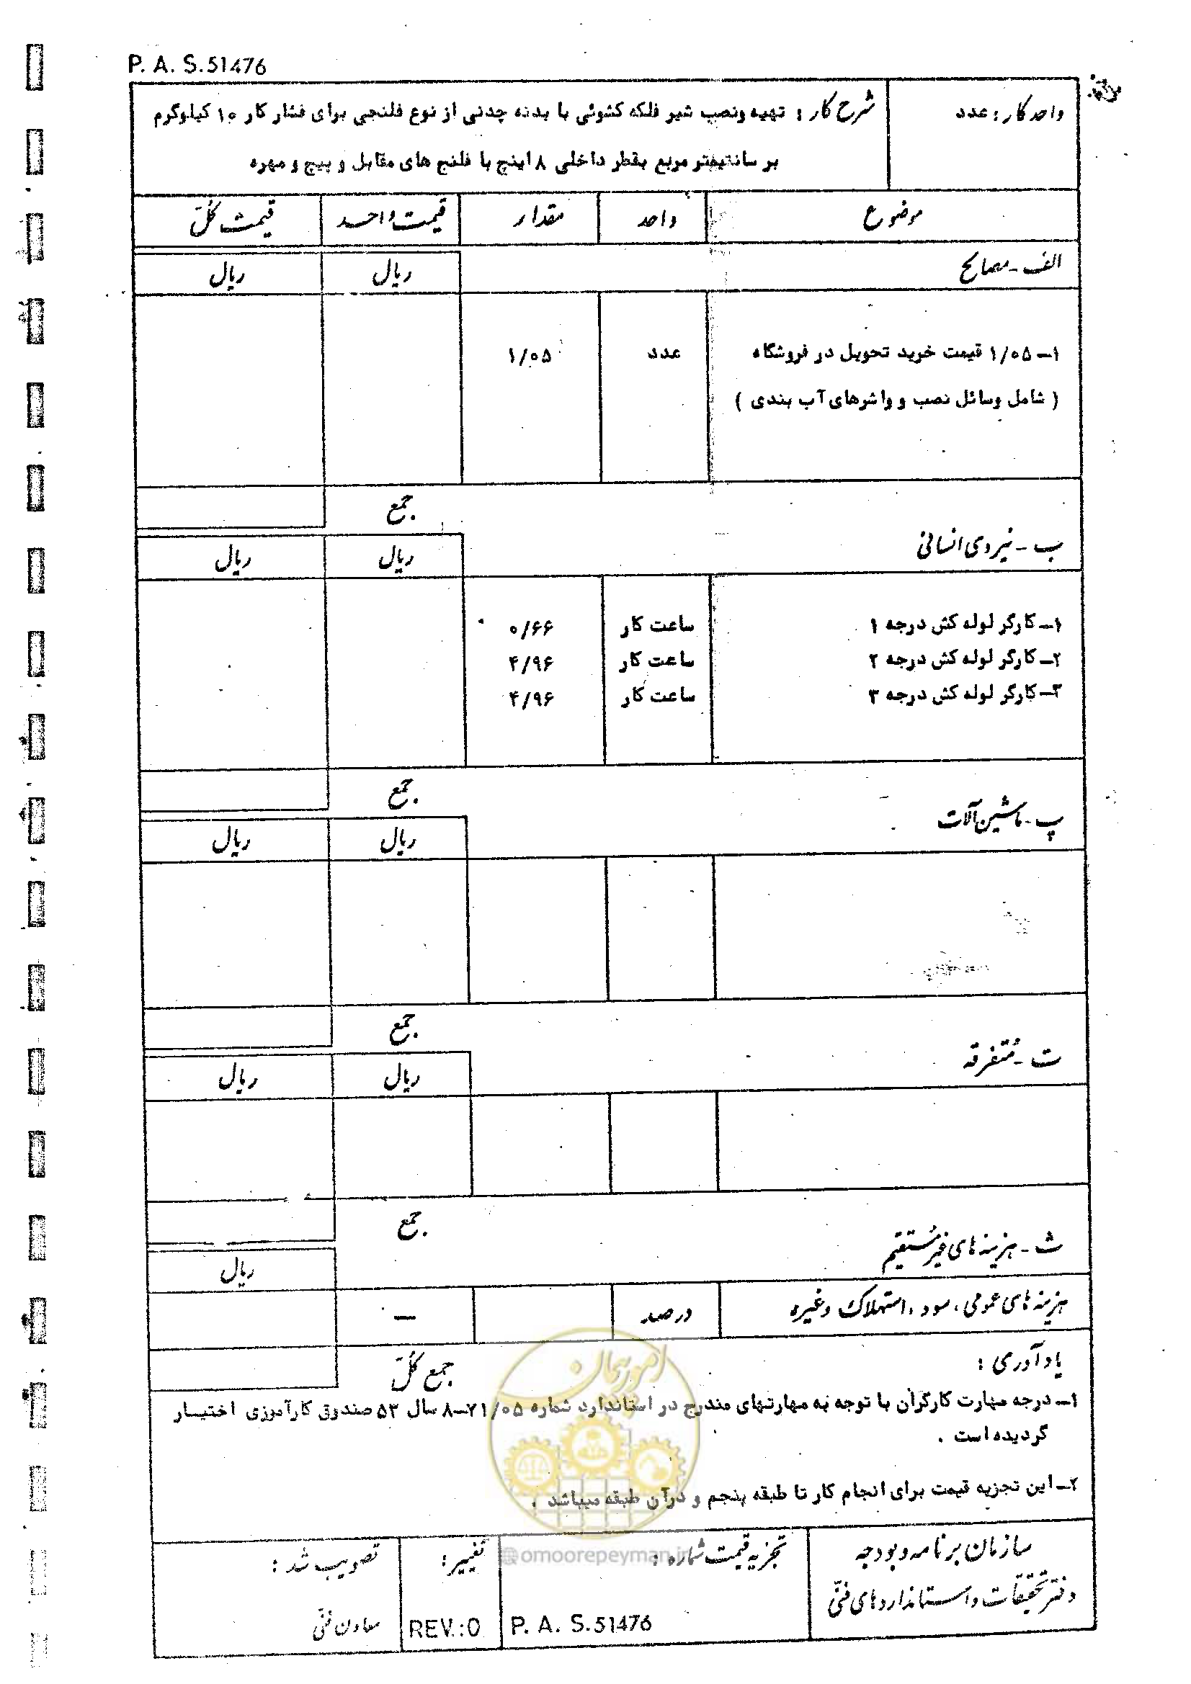 P. A. S.51476
واحد کار : عدد
شرح کار : تهیه ونصب شیر فلکه کشوئی با بدنه چدنی از نوع فلنجی برای فشار کار ۱۰ کیلوگرم
بر سانتیمتر مربع بقطر داخلی ۸ اینچ با فلنج های مقابل و پیچ و مهره
موضوع واحد مقدار قیمت واحد قیمت کل
الف - مصالح ریال ریال
۱- ۱/۰۵ قیمت خرید تحویل در فروشگاه عدد ۱/۰۵
( شامل وسائل نصب و واشرهای آب بندی )
جمع
ب - نیروی انسانی ریال ریال
۱- کارگر لوله کش درجه ۱ ساعت کار ۰/۶۶
۲- کارگر لوله کش درجه ۲ ساعت کار ۴/۹۶
۳- کارگر لوله کش درجه ۳ ساعت کار ۴/۹۶
جمع
پ - ماشین آلات ریال ریال
جمع
ت - متفرقه ریال ریال
جمع
ث - هزینه های غیر مستقیم ریال
هزینه های عمومی ، سود ، استهلاک وغیره درصد —
جمع کل
یادآوری :
۱- درجه مهارت کارگران با توجه به مهارتهای مندرج در استاندارد شماره ۷۱/۰۵-۸ سال ۵۳ صندوق کارآموزی اختیار
گردیده است .
۲- این تجزیه قیمت برای انجام کار تا طبقه پنجم و درآن طبقه میباشد .
امور پیمان
@omoorepeyman.ir
سازمان برنامه و بودجه
دفتر تحقیقات و استانداردهای فنی
تجزیه قیمت شماره :
P. A. S.51476
تغییر :
REV.:0
تصویب شد :
معاون فنی